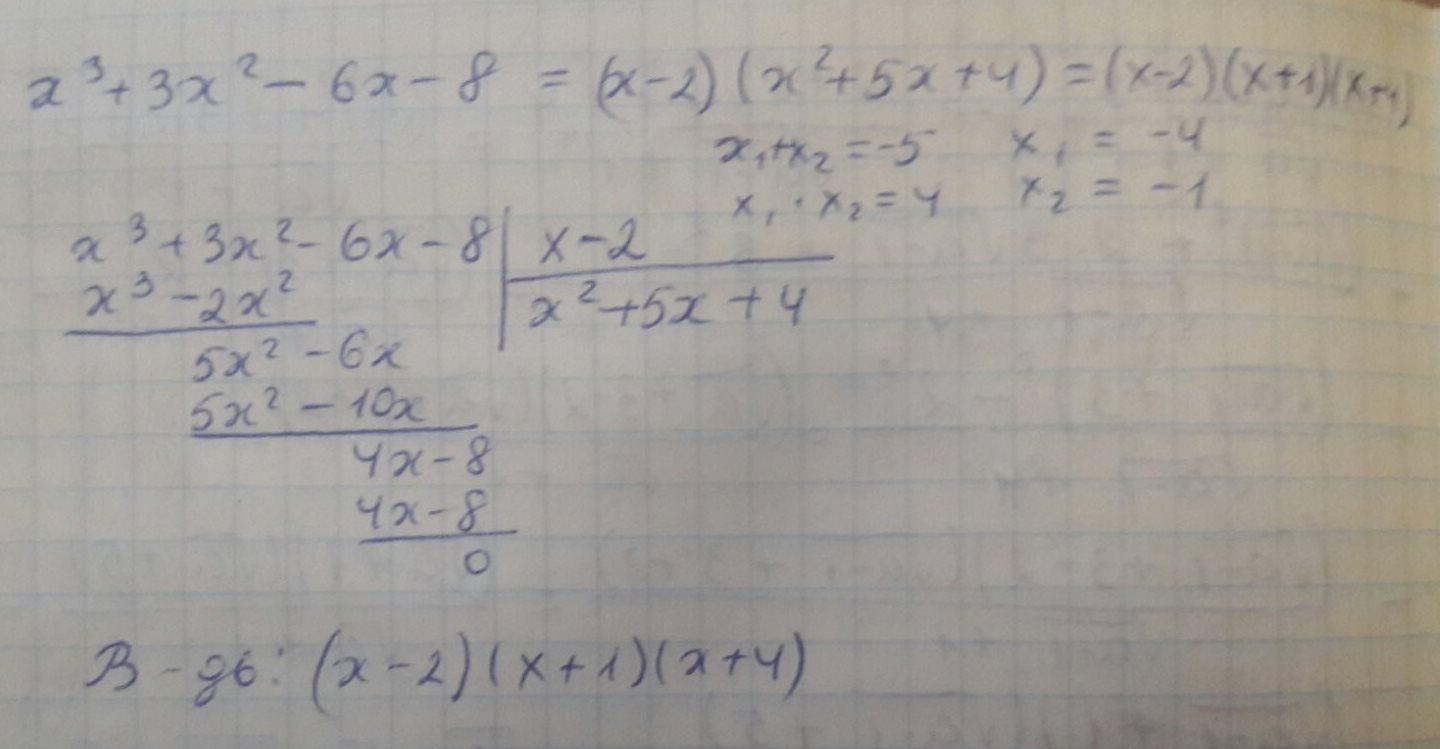 x³+3x²-6x-8 = (x-2)(x²+5x+4)=(x-2)(x+1)(x+4)
x₁+x₂=-5 x₁ = -4
x₁·x₂=4 x₂ = -1
x³+3x²-6x-8 | x-2
x³-2x² | x²+5x+4
5x²-6x
5x²-10x
4x-8
4x-8
0
В-дь: (x-2)(x+1)(x+4)